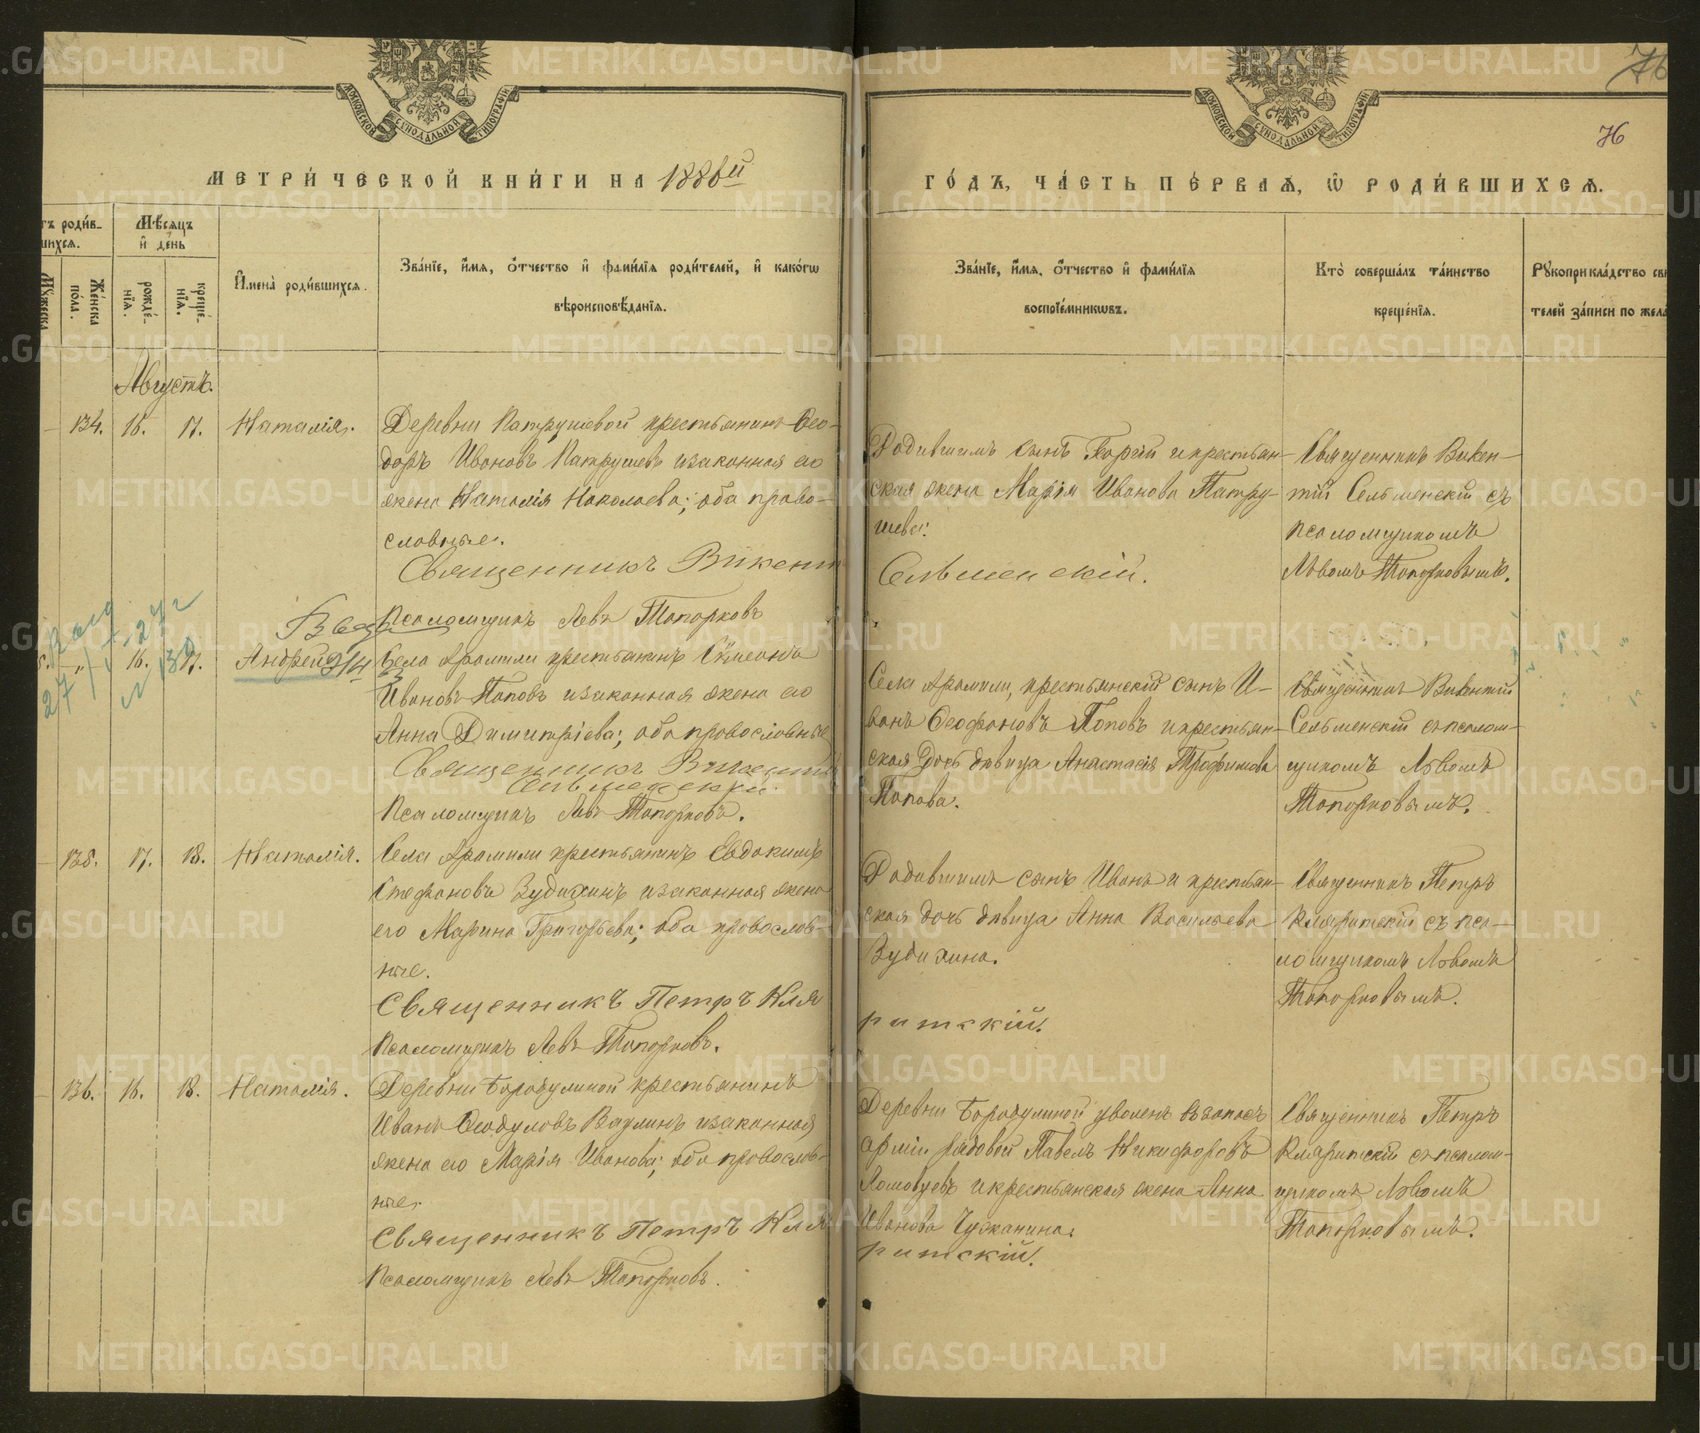 МЕТРИ́ЧЕСКОЙ КНИ́ГИ НА 1886й
ГО́ДЪ, ЧА́СТЬ ПЕ́РВАѦ, Ѡ РОДИ́ВШИХСѦ.
76
Мѣ́сѧцъ и҆ де́нь
Же́нска по́ла.
рожде́нїѧ.
креще́нїѧ.
И҆мена̀ роди́вшихсѧ.
Зва́нїе, и҆́мѧ, ѻ҆́тчество и҆ фами́лїѧ роди́телей, и҆ како́гѡ
вѣроисповѣ́данїѧ.
Зва́нїе, и҆́мѧ, ѻ҆́тчество и҆ фами́лїѧ
воспрїе́мникѡвъ.
Кто̀ соверша́лъ та́инство
креще́нїѧ.
Рꙋкоприкла́дство сви
телей за́писи по жела
Августъ.
134. 16. 17. Наталія.
Деревни Патрушевой крестьянинъ Ѳео-
доръ Ивановъ Патрушевъ и законная его
жена Наталія Николаева; оба право-
славные.
Священникъ Викент
Псаломщикъ Левъ Топорковъ
Родившимъ сынъ и крестьян-
ская жена Марія Ивановна Патру-
шева.
Сельменскій.
Священникъ Викен-
тій Сельменскій съ
псаломщикомъ
Львомъ Топорковымъ.
16. 17. Андрей
Села Арамили крестьянинъ Симеонъ
Ивановъ Поповъ и законная жена его
Анна Димитріева; оба православные
Священникъ Викентій
Сельменскій.
Псаломщикъ Левъ Топорковъ.
Села Арамили, крестьянскій сынъ И-
ванъ Ѳеофановъ Поповъ и крестьян-
ская дочь дѣвица Анастасія Трофимова
Попова.
Священникъ Викентій
Сельменскій съ псалом-
щикомъ Львомъ
Топорковымъ.
135. 17. 18. Наталія.
Села Арамили крестьянинъ Евдокимъ
Стефановъ Зудихинъ и законная жена
его Марина Григорьева; оба православ-
ные.
Священникъ Петръ Кля
Псаломщикъ Левъ Топорковъ.
Родившимъ сынъ Иванъ и крестьян-
ская дочь дѣвица Анна Васильева
Зудихина.
ритскій.
Священникъ Петръ
Кляритскій съ пса-
ломщикомъ Львомъ
Топорковымъ.
136. 16. 18. Наталія.
Деревни Бородулиной крестьянинъ
Иванъ Ѳеодуловъ Ваулинъ и законная
жена его Марія Иванова; оба православ-
ные.
Священникъ Петръ Кля
Псаломщикъ Левъ Топорковъ.
Деревни Бородулиной уволен. въ запасъ
арміи рядовой Павелъ Никифоровъ
и крестьянская жена Анна
Иванова Чужанина.
ритскій.
Священникъ Петръ
Кляритскій съ псалом-
щикомъ Львомъ
Топорковымъ.
METRIKI.GASO-URAL.RU